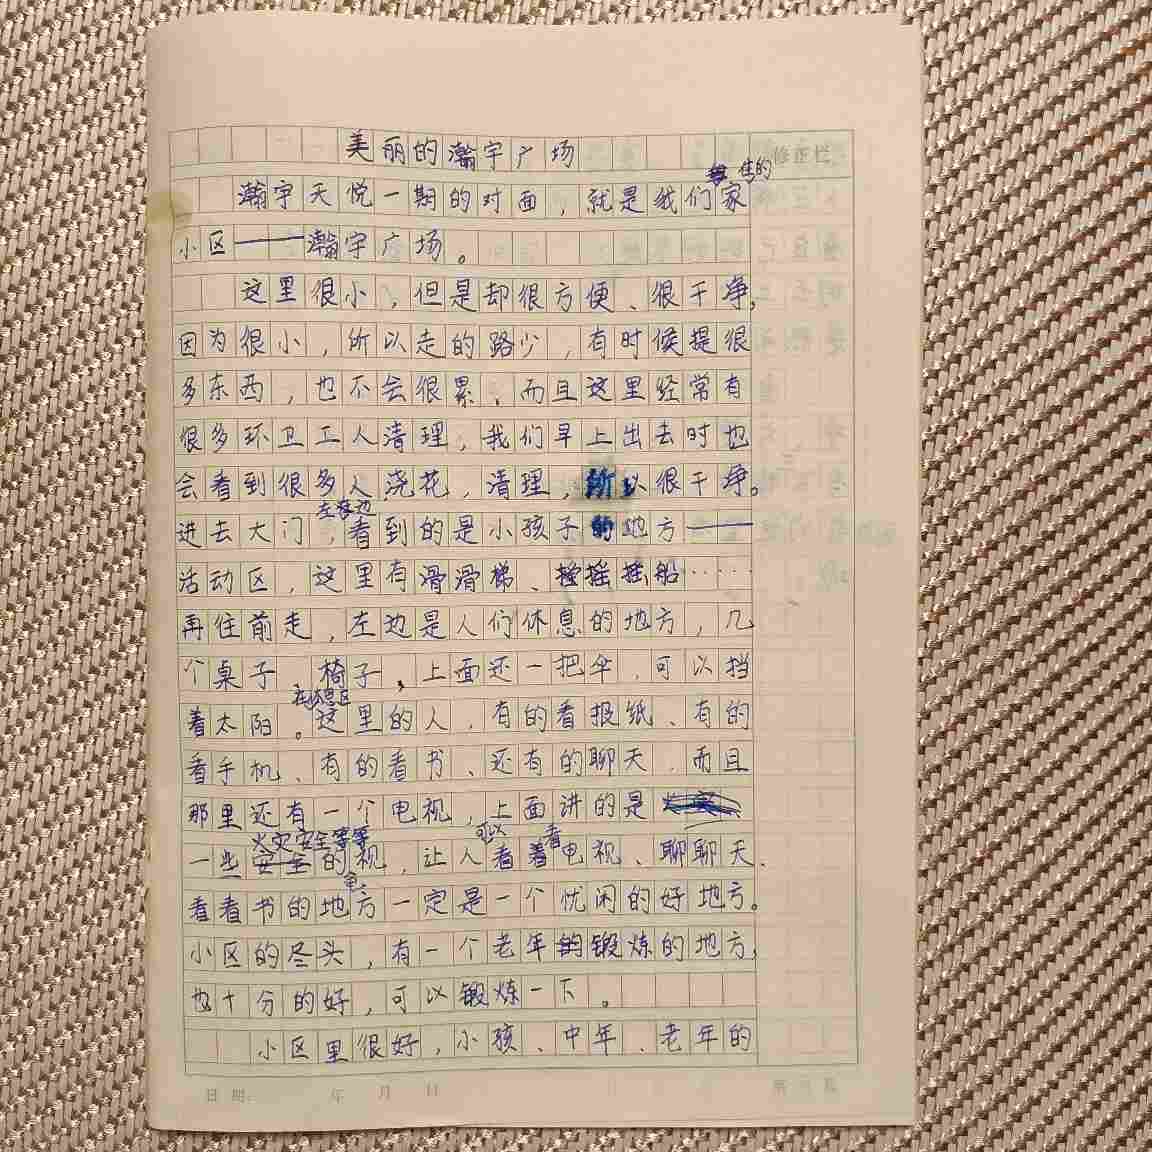 美丽的瀚宇广场
修正栏
住的
瀚宇天悦一期的对面，就是我们家
小区——瀚宇广场。
这里很小，但是却很方便、很干净，
因为很小，所以走的路少，有时候提很
多东西，也不会很累，而且这里经常有
很多环卫工人清理，我们早上出去时也
会看到很多人浇花，清理，所以很干净。
左右边
进去大门，看到的是小孩子的地方——
活动区，这里有滑滑梯、摇摇船……
再往前走，左边是人们休息的地方，几
个桌子、椅子，上面还一把伞，可以挡
在休息区
着太阳。这里的人，有的看报纸、有的
看手机、有的看书、还有的聊天，而且
那里还有一个电视，上面讲的是
火灾安全等等 可以 看
一些安全的视，让人看着电视、聊聊天、
看看书的地方一定是一个忧闲的好地方。
小区的尽头，有一个老年锻炼的地方，
也十分的好，可以锻炼一下。
小区里很好，小孩、中年、老年的
日期： 年 月 日 第 页